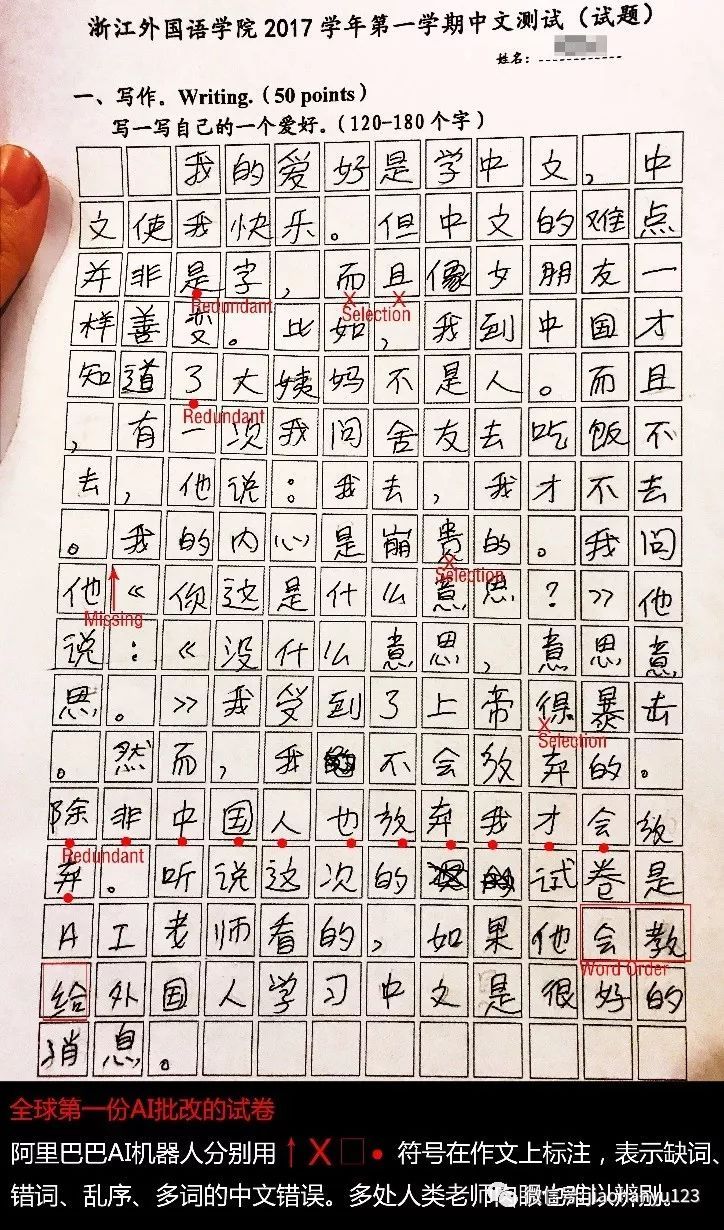 浙江外国语学院 2017 学年第一学期中文测试（试题）
姓名：
一、写作。Writing.（50 points）
写一写自己的一个爱好。（120-180 个字）
我的爱好是学中文，中
文使我快乐。但中文的难点
并非是字，而且像女朋友一
Redundant Selection
样善变。比如，我到中国才
知道了大姨妈不是人。而且
Redundant
，有一次我问舍友去吃饭不
去，他说：我去，我才不去
。我的内心是崩贵的。我问
Selection
他《你这是什么意思？》他
Missing
说：《没什么意思，意思意
思。》我受到了上帝得暴击
Selection
。然而，我不会放弃的。
除非中国人也放弃我才会放
Redundant
弃。听说这次的试卷是
AI老师看的，如果他会教
Word Order
给外国人学习中文是很好的
消息。
全球第一份AI批改的试卷
阿里巴巴AI机器人分别用 ↑ X □ ● 符号在作文上标注，表示缺词、
错词、乱序、多词的中文错误。多处人类老师肉眼也难以辨别。
微信号: jiaohanyu123